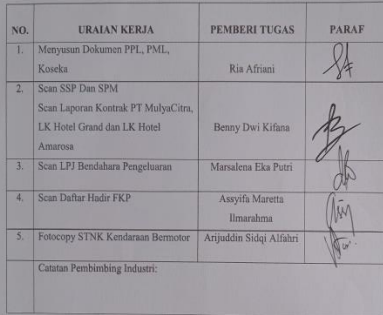 NO. URAIAN KERJA PEMBERI TUGAS PARAF
1. Menyusun Dokumen PPL, PML,
Koseka Ria Afriani
2. Scan SSP Dan SPM
Scan Laporan Kontrak PT MulyaCitra,
LK Hotel Grand dan LK Hotel Benny Dwi Kifana
Amarosa
3. Scan LPJ Bendahara Pengeluaran Marsalena Eka Putri
4. Scan Daftar Hadir FKP Assyifa Maretta
Ilmarahma
5. Fotocopy STNK Kendaraan Bermotor Arijuddin Sidqi Alfahri
Catatan Pembimbing Industri: